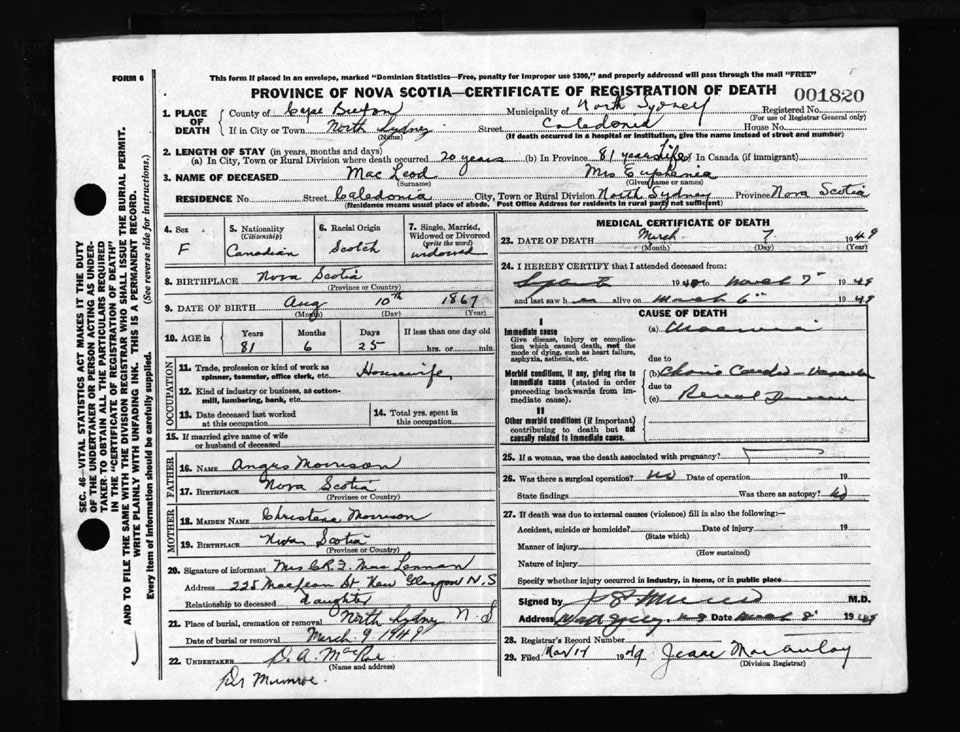 FORM 6
This form if placed in an envelope, marked "Dominion Statistics—Free, penalty for improper use $300," and properly addressed will pass through the mail "FREE"
PROVINCE OF NOVA SCOTIA—CERTIFICATE OF REGISTRATION OF DEATH
001820
1. PLACE OF DEATH
County of Cape Breton Municipality of North Sydney Registered No.
(For use of Registrar General only)
If in City or Town North Sydney Street Caledonia House No.
(Name) (If death occurred in a hospital or institution, give the name instead of street and number)
2. LENGTH OF STAY (in years, months and days)
(a) In City, Town or Rural Division where death occurred 20 years (b) In Province 81 years Life In Canada (if immigrant)
3. NAME OF DECEASED Mac Leod Mrs Euphemia
(Surname) (Given name or names)
RESIDENCE No. Street Caledonia City, Town or Rural Division North Sydney Province Nova Scotia
(Residence means usual place of abode. Post Office Address for residents in rural parts not sufficient)
4. Sex
F
5. Nationality
(Citizenship)
Canadian
6. Racial Origin
Scotch
7. Single, Married, Widowed or Divorced
(write the word)
widowed
8. BIRTHPLACE Nova Scotia
(Province or Country)
9. DATE OF BIRTH Aug 10th 1867
(Month) (Day) (Year)
10. AGE in Years Months Days If less than one day old
81 6 25 hrs. or min.
OCCUPATION
11. Trade, profession or kind of work as spinner, teamster, office clerk, etc. Housewife
12. Kind of industry or business, as cotton-mill, lumbering, bank, etc.
13. Date deceased last worked at this occupation
14. Total yrs. spent in this occupation
15. If married give name of wife or husband of deceased
FATHER
16. NAME Angus Morrison
17. BIRTHPLACE Nova Scotia
(Province or Country)
MOTHER
18. MAIDEN NAME Christena Morrison
19. BIRTHPLACE Nova Scotia
(Province or Country)
20. Signature of informant Mrs C.R.F. Mac Lennan
Address 225 MacLean St. New Glasgow N.S
Relationship to deceased daughter
21. Place of burial, cremation or removal North Sydney N.S
Date of burial or removal March 9 1949
22. UNDERTAKER D. A. MacRae
(Name and address)
Dr Munroe.
MEDICAL CERTIFICATE OF DEATH
23. DATE OF DEATH March 7 1949
(Month) (Day) (Year)
24. I HEREBY CERTIFY that I attended deceased from:
1948 to March 7 1949
and last saw h er alive on March 6 1949
CAUSE OF DEATH
I
Immediate cause
Give disease, injury or complication which caused death, not the mode of dying, such as heart failure, asphyxia, asthenia, etc.
(a)
due to
Morbid conditions, if any, giving rise to immediate cause (stated in order proceeding backwards from immediate cause).
(b) Chronic Cardio-Vascular
due to
(c) Renal
II
Other morbid conditions (if important) contributing to death but not causally related to immediate cause.
25. If a woman, was the death associated with pregnancy?
26. Was there a surgical operation? No Date of operation 19
State findings Was there an autopsy? No
27. If death was due to external causes (violence) fill in also the following:—
Accident, suicide or homicide? Date of injury 19
(State which)
Manner of injury
(How sustained)
Nature of injury
Specify whether injury occurred in industry, in home, or in public place
Signed by M.D.
Address Date March 8 1949
28. Registrar's Record Number
29. Filed Mar 17 1949 Jean Macaulay
(Division Registrar)
SEC. 46—VITAL STATISTICS ACT MAKES IT THE DUTY OF THE UNDERTAKER OR PERSON ACTING AS UNDERTAKER: TO OBTAIN ALL THE PARTICULARS REQUIRED IN THE "CERTIFICATE OF REGISTRATION OF DEATH" AND TO FILE THE SAME WITH THE DIVISION REGISTRAR WHO SHALL ISSUE THE BURIAL PERMIT.
WRITE PLAINLY WITH UNFADING INK. THIS IS A PERMANENT RECORD.
Every item of information should be carefully supplied. (See reverse side for instructions.)